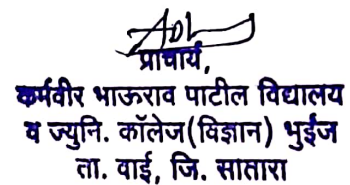 प्राचार्य,
कर्मवीर भाऊराव पाटील विद्यालय
व ज्युनि. कॉलेज(विज्ञान) भुईंज
ता. वाई, जि. सातारा